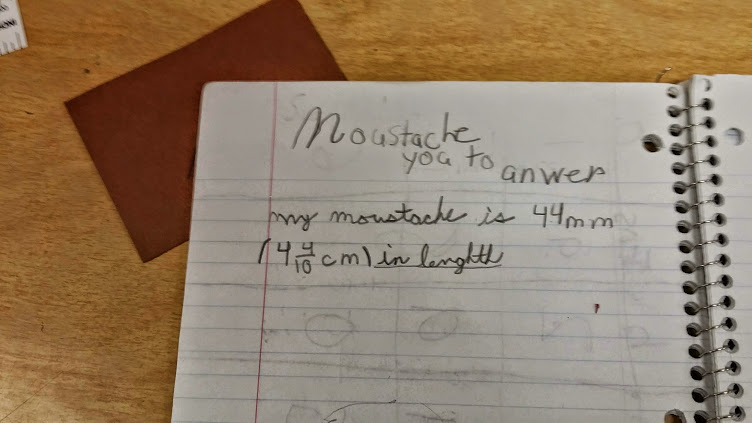 Moustache
you to
anwer
my moustache is 44mm
(4 4/10 cm) in lenghth